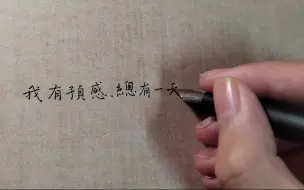 我有預感.總有一天